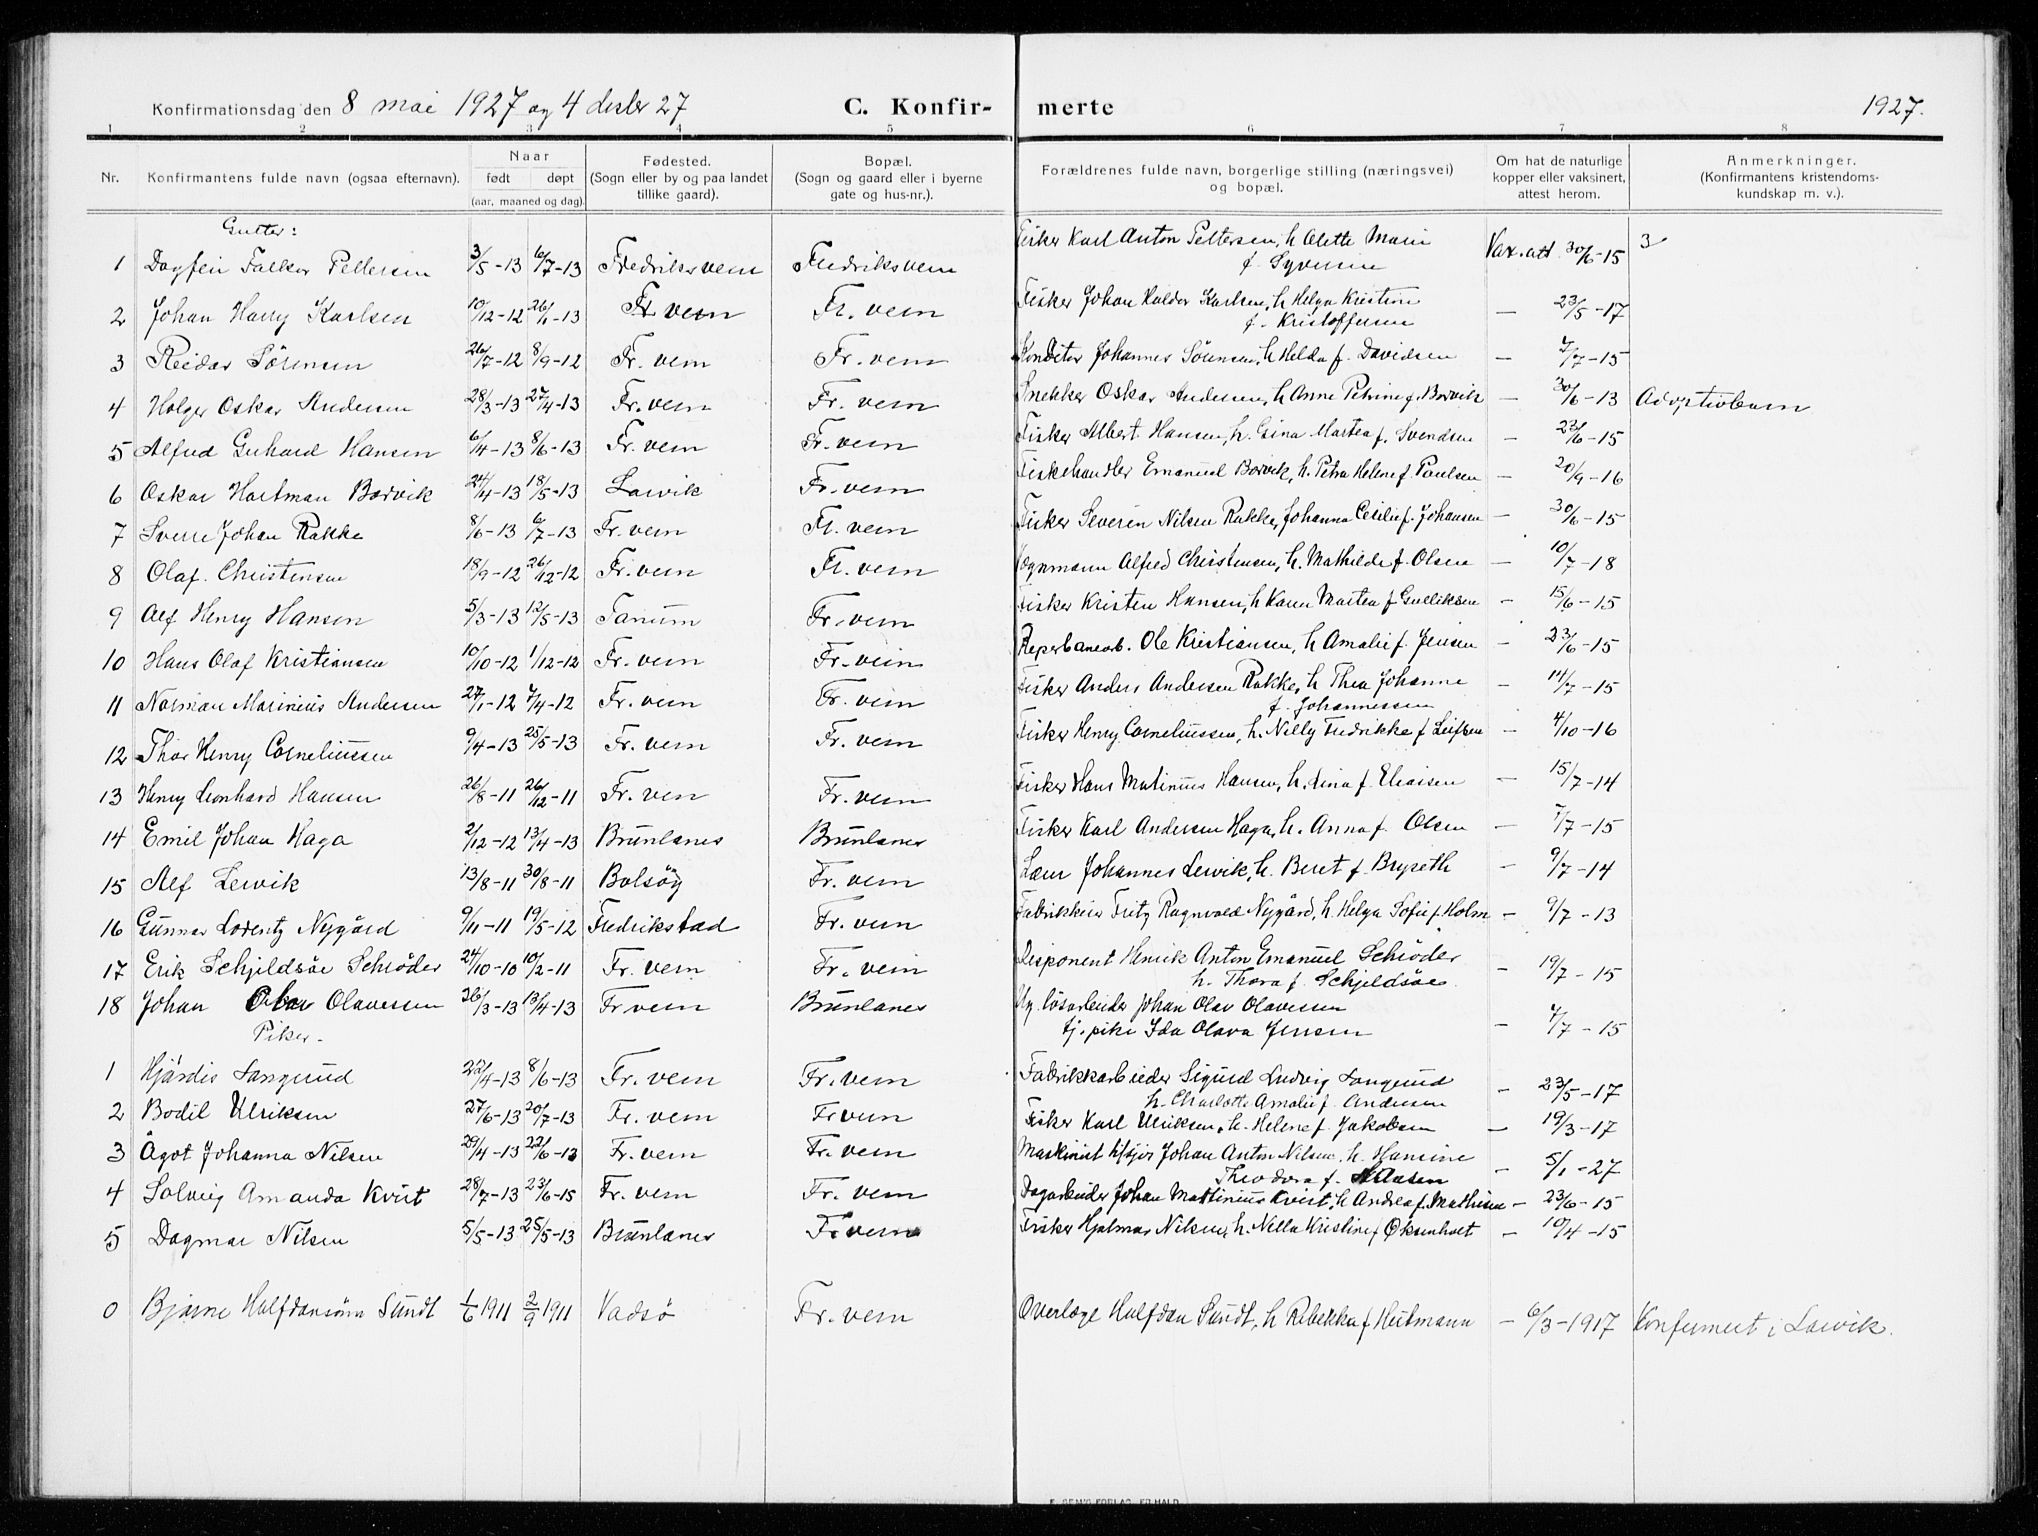 Konfirmationsdag den 8 mai 1927 og 4 desbr 27 C. Konfir- merte 1927.
1 2 3 4 5 6 7 8
Nr. Konfirmantens fulde navn (ogsaa efternavn). Naar født døpt (aar, maaned og dag). Fødested. (Sogn eller by og paa landet tillike gaard). Bopæl. (Sogn og gaard eller i byerne gate og hus-nr.). Forældrenes fulde navn, borgerlige stilling (næringsvei) og bopæl. Om hat de naturlige kopper eller vaksinert, attest herom. Anmerkninger. (Konfirmantens kristendoms- kundskap m. v.).
Gutter:
1 Dagfin Falkor Pettersen 3/5-13 6/7-13 Fredriksvern Fredriksvern Fisker Karl Anton Pettersen, h Alette Marie f. Syversen Vax.att 30/6-15 3
2 Johan Harry Karlsen 10/12-12 26/1-13 Fr. vern Fr. vern Fisker Johan Haldor Karlsen, h Helga Kristine f. Kristoffersen — 23/5-17
3 Reidar Sørensen 26/7-12 8/9-12 Fr. vern Fr. vern Konditor Johannes Sørensen, h Helda f. Davidsen — 7/7-15
4 Holger Oskar Andersen 28/3-13 27/4-13 Fr. vern Fr. vern Snekker Oskar Andersen, h Anne Petrine f. Borvik — 30/6-13 Adoptivbarn
5 Alfred Gerhard Hansen 6/4-13 8/6-13 Fr. vern Fr. vern Fisker Albert Hansen, h. Gina Martea f. Svendsen — 23/6-15
6 Oskar Hartman Borvik 24/4-13 18/5-13 Larvik Fr. vern Fiskehandler Emanuel Borvik, h. Petra Helene f. Paulsen — 20/9-16
7 Sverre Johan Rakke 8/6-13 6/7-13 Fr. vern Fr. vern Fisker Severin Nilsen Rakke, Johanna Cecilie f. Johansen — 30/6-15
8 Olaf Christensen 18/9-12 26/12-12 Fr. vern Fr. vern Vognmann Alfred Christensen, h. Mathilde f Olsen — 10/7-18
9 Alf Henry Hansen 5/3-13 12/5-13 Tanum Fr. vern Fisker Kristen Hansen, h Karen Martea f Gulliksen — 15/6-15
10 Hans Olaf Kristiansen 10/10-12 1/12-12 Fr. vern Fr. vern Reperbanearb. Ole Kristiansen, h Amalie f. Jensen — 23/6-15
11 Norman Marinius Andersen 27/1-12 7/4-12 Fr. vern Fr. vern Fisker Anders Andersen Rakke, h Thea Johanne f. Johannessen — 14/7-15
12 Thor Henry Corneliussen 9/4-13 25/5-13 Fr. vern Fr. vern Fisker Henry Corneliussen, h. Nelly Fredrikke f Leifsen — 4/10-16
13 Henry Leonhard Hansen 26/8-11 26/12-11 Fr. ven Fr. vern Fisker Hans Matinius Hansen, h. Lina f. Eliaisen — 15/7-14
14 Emil Johan Haga 2/12-12 13/4-13 Brunlanes Brunlanes Fisker Karl Andersen Haga, h. Anna f. Olsen — 7/7-15
15 Alf Lervik 13/8-11 30/8-11 Bolsøy Fr. vern Lærer Johannes Lervik, h. Beret f. Bryseth — 9/7-14
16 Gunnar Lorentz Nygård 9/11-11 19/5-12 Fredrikstad Fr. vern Fabrikkeier Fritz Ragnvald Nygård, h. Helga Sofie f. Holm — 9/7-13
17 Erik Schjeldsøe Schrøder 24/10-10 10/2-11 Fr. vern Fr. vern Disponent Henrik Anton Emanuel Schrøder h. Thora f. Schjeldsøe — 19/7-15
18 Johan Olav Olavessen 26/3-13 13/4-13 Fr vern Brunlanes Ug. løsarbeider Johan Olav Olavessen tj. pike Ida Olava Jensen — 7/7-15
Piker.
1 Hjørdis Langrud 22/4-13 8/6-13 Fr. vern Fr. vern Fabrikkarbeider Sigurd Ludvig Langrud h. Charlotte Amalie f. Andersen — 23/5-17
2 Bodil Ulriksen 27/6-13 20/7-13 Fr. vern Fr vern Fisker Karl Ulriksen, h. Helene f. Jakobsen — 19/3-17
3 Ågot Johanna Nilsen 29/4-13 22/6-13 Fr. vern Fr. vern Maskinist Johan Anton Nilsen, h. Hansine Theodora f. — 5/1-27
4 Solveig Amanda Kvist 28/7-13 23/6-15 Fr. vern Fr. vern Dagarbeider Johan Martinius Kvist, h Andrea f. Mathisen — 23/6-15
5 Dagmar Nilsen 5/5-13 25/5-13 Brunlanes Fr. vern Fisker Hjalmar Nilsen, h. Nella Kristine f Oksenholt — 10/4-15
0 Bjarne Halfdansønn Sundt 1/6 1911 2/9 1911 Vadsø Fr. vern Overlæge Halfdan Sundt, h Rebekka f Heitmann — 6/3-1917 Konfirmert i Larvik.